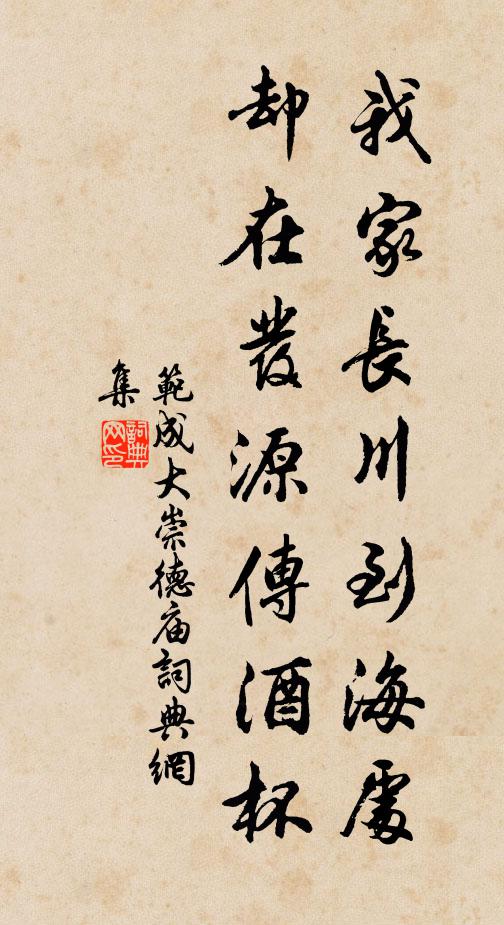 我家長川到海處
却在發源傳酒杯
範成大崇德庙詞典網
集
詞典
网印